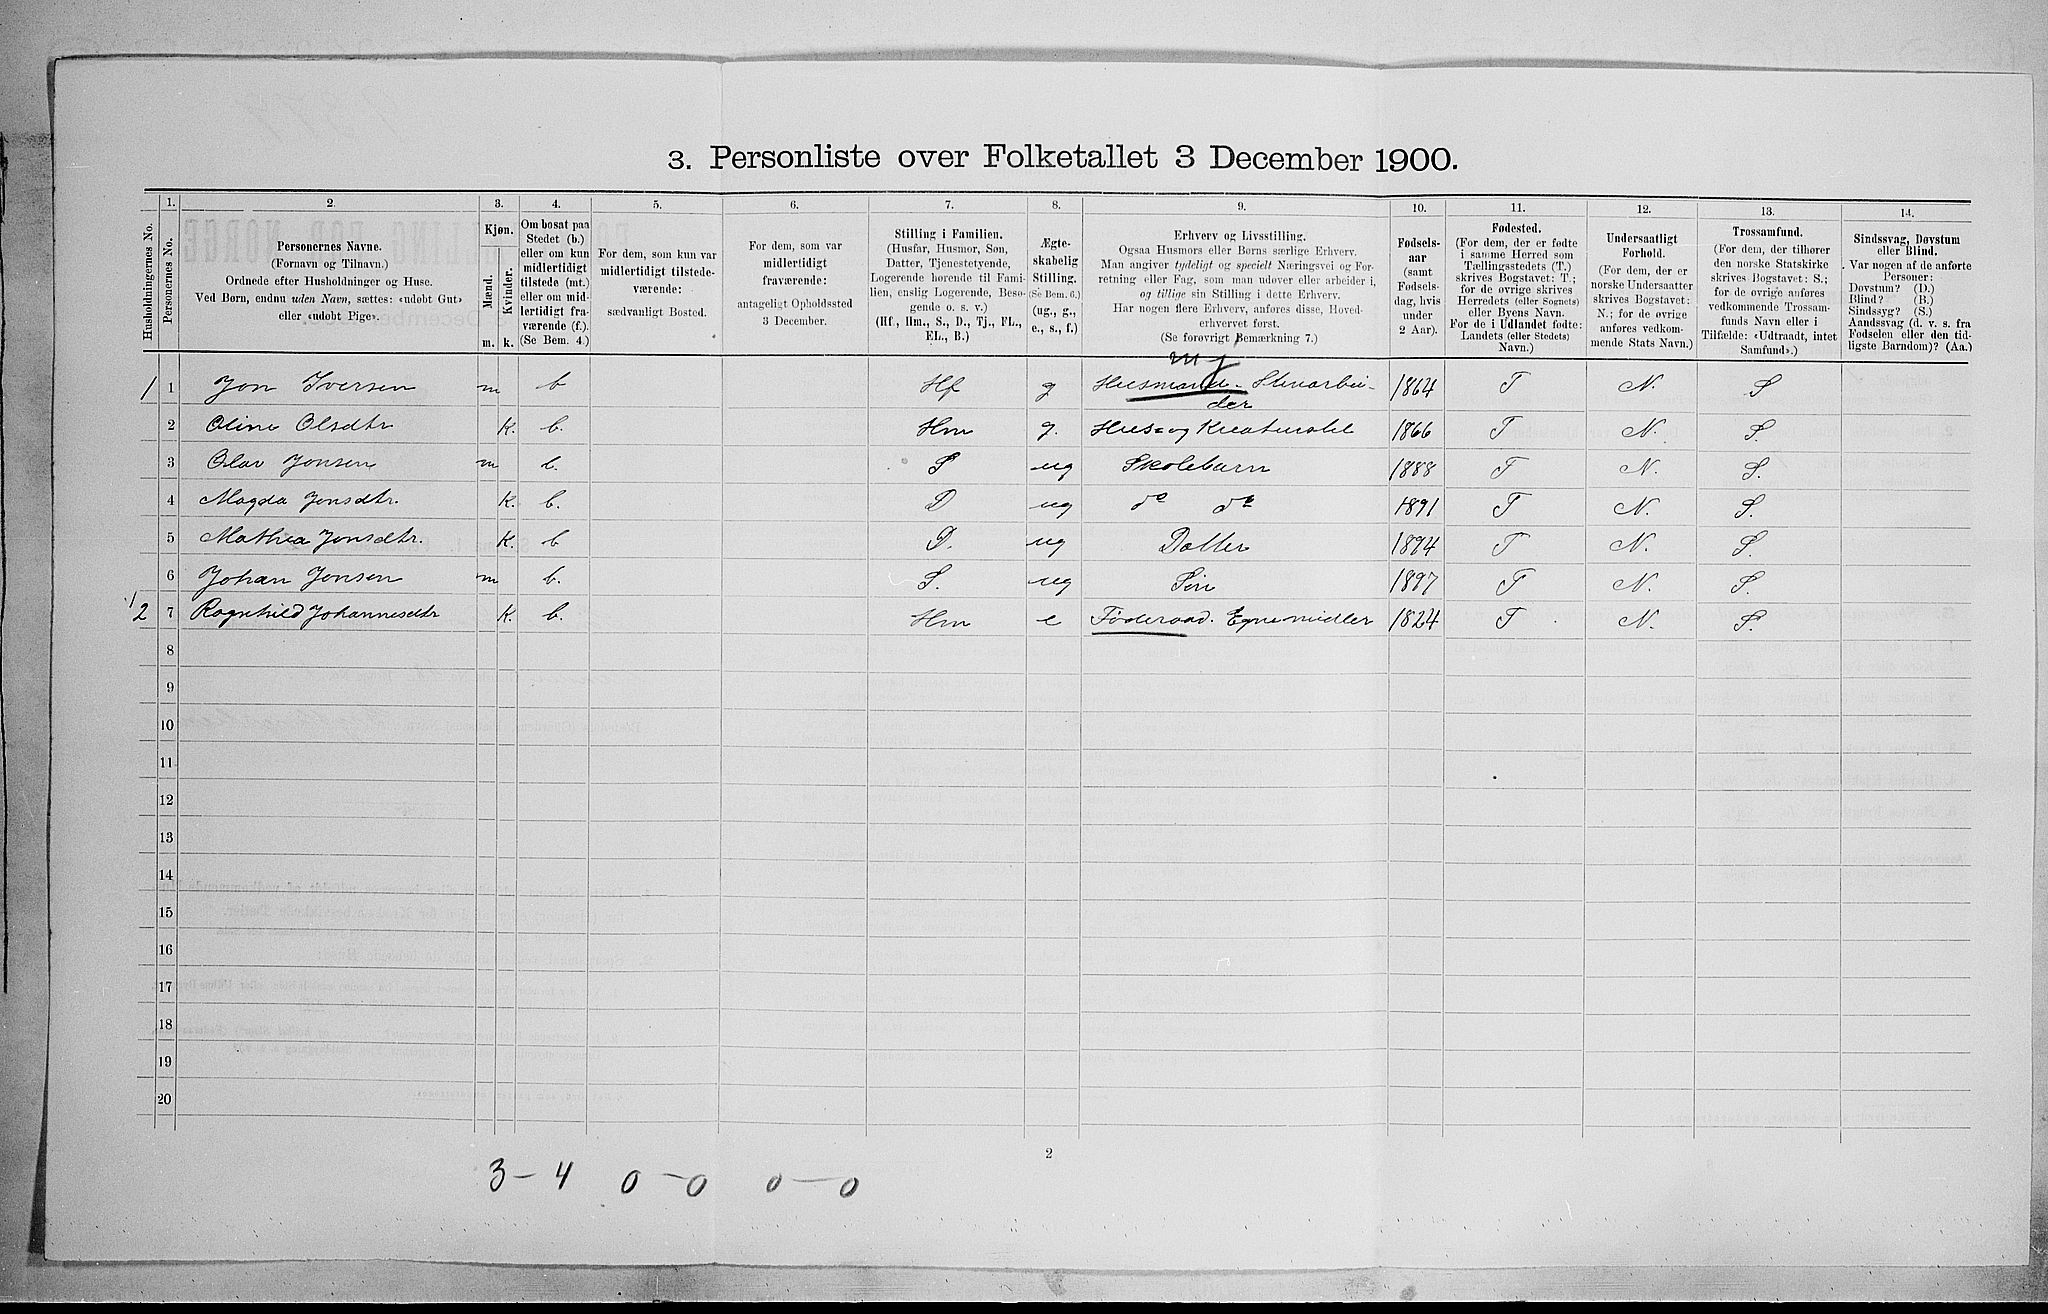 3. Personliste over Folketallet 3 December 1900.
Husholdningernes No.
1.
Personernes No.
2.
Personernes Navne.
(Fornavn og Tilnavn.)
Ordnede efter Husholdninger og Huse.
Ved Børn, endnu uden Navn, sættes: «udøbt Gut»
eller «udøbt Pige».
3.
Kjøn.
Mænd. Kvinder.
m. k.
4.
Om bosat paa
Stedet (b.)
eller om kun
midlertidigt
tilstede (mt.)
eller om mid-
lertidigt fra-
værende (f.).
(Se Bem. 4.)
5.
For dem, som kun var
midlertidigt tilstede-
værende:
sædvanligt Bosted.
6.
For dem, som var
midlertidigt
fraværende:
antageligt Opholdssted
3 December.
7.
Stilling i Familien.
(Husfar, Husmor, Søn,
Datter, Tjenestetyende,
Logerende hørende til Fami-
lien, enslig Logerende, Besø-
gende o. s. v.)
(Hf., Hm., S., D., Tj., FL.,
EL., B.)
8.
Ægte-
skabelig
Stilling.
(Se Bem. 6.)
(ug., g.,
e., s., f.)
9.
Erhverv og Livsstilling.
Ogsaa Husmors eller Børns særlige Erhverv.
Man angiver tydeligt og specielt Næringsvei og For-
retning eller Fag, som man udøver eller arbeider i,
og tillige sin Stilling i dette Erhverv.
Har nogen flere Erhverv, anføres disse, Hoved-
erhvervet først.
(Se forøvrigt Bemærkning 7.)
10.
Fødsels-
aar
(samt
Fødsels-
dag, hvis
under
2 Aar).
11.
Fødested.
(For dem, der er fødte
i samme Herred som
Tællingsstedets (T.)
skrives Bogstavet: T.;
for de øvrige skrives
Herredets (eller Sognets)
eller Byens Navn.
For de i Udlandet fødte:
Landets (eller Stedets)
Navn.)
12.
Undersaatligt
Forhold.
(For dem, der er
norske Undersaatter
skrives Bogstavet:
N.; for de øvrige
anføres vedkom-
mende Stats Navn.)
13.
Trossamfund.
(For dem, der tilhører
den norske Statskirke
skrives Bogstavet: S.;
for de øvrige anføres
vedkommende Trossam-
funds Navn eller i
Tilfælde: «Udtraadt, intet
Samfund».)
14.
Sindssvag, Døvstum
eller Blind.
Var nogen af de anførte
Personer:
Døvstum? (D.)
Blind? (B.)
Sindssyg? (S.)
Aandssvag (d. v. s. fra
Fødselen eller den tid-
ligste Barndom)? (Aa.)
1 1 Jon Iversen m b Hf g Husmand. Stenarbei- 1864 T N. S
der
2 Oline Olsdtr K. b. Hm g. Hus- og Kreaturstel 1866 T N. S.
3 Olav Jonsen m b. S ug Skolebarn 1888 T N. S.
4 Magda Jonsdtr. K. b. D ug do do 1891 T N. S.
5 Mathea Jonsdtr. K. b D. ug Datter 1894 T N. S.
6 Johan Jonsen m b. S. ug Søn 1897 T N. S.
2 7 Ragnhild Johannesdtr K. b. Hm e Føderaad. Egne midler 1824 T N. S.
8
9
10
11
12
13
14
15
16
17
18
19
20
2
3-4 0-0 0-0